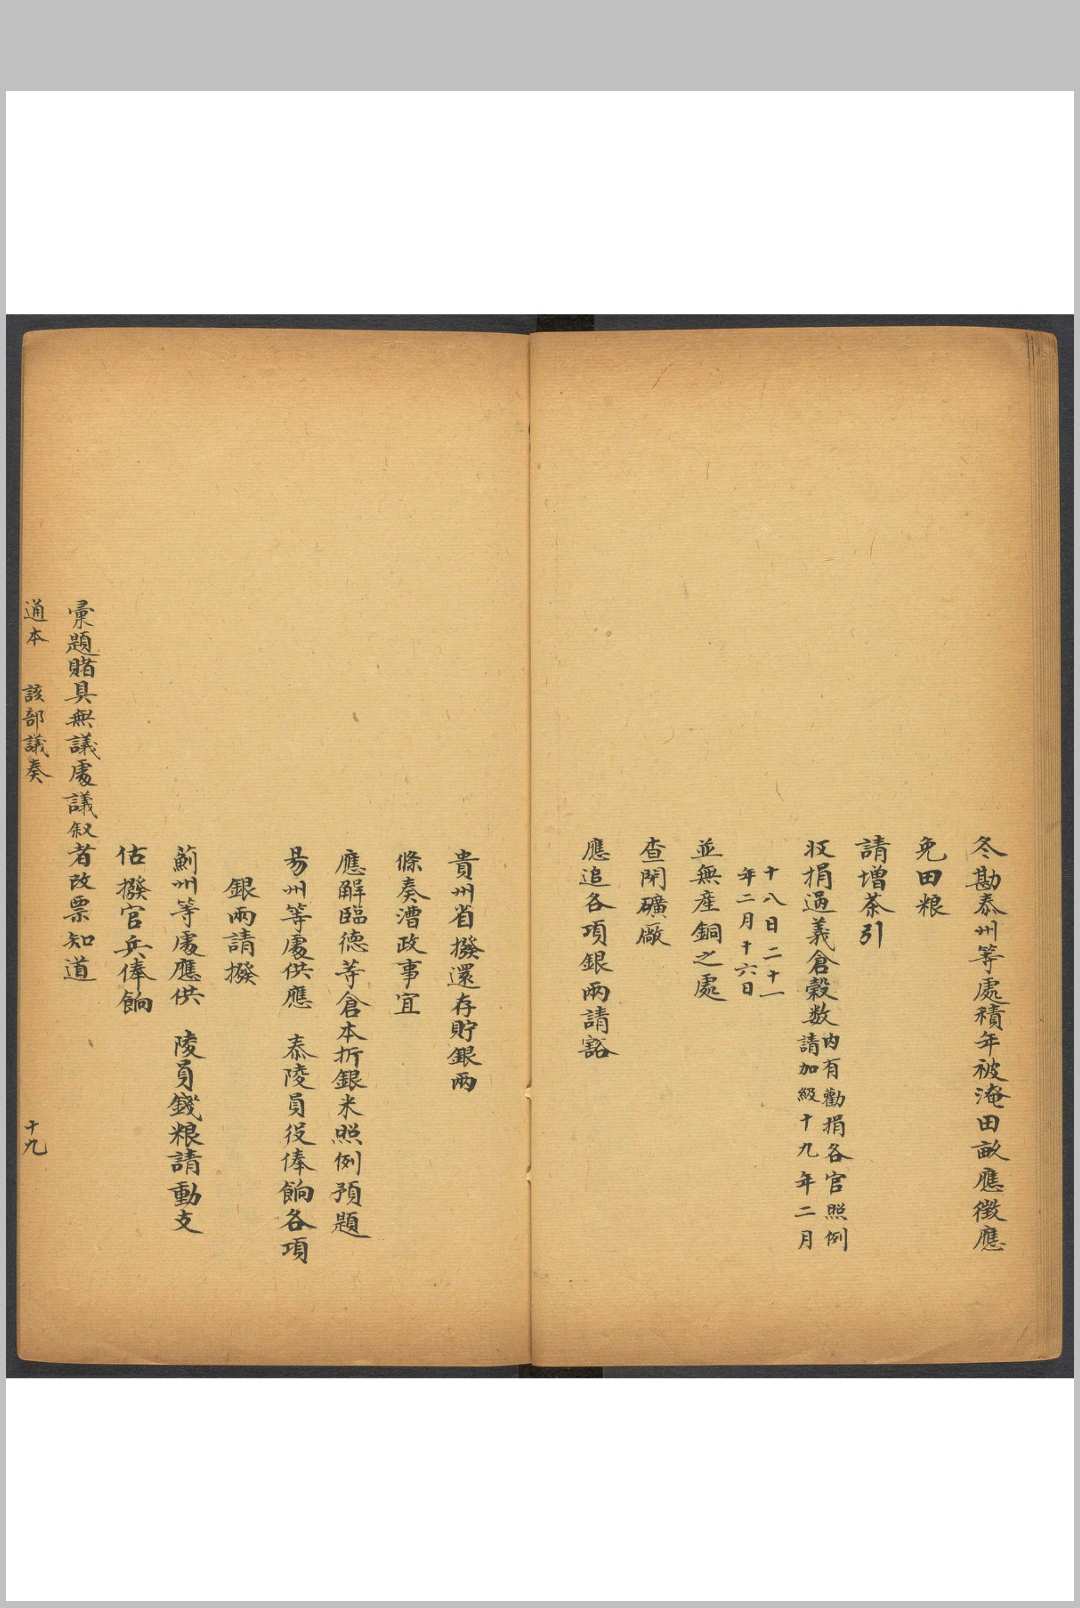 冬勘泰州等處積年被淹田畝應徵應
免田粮
請增茶引
収捐過義倉穀数内有勸捐各官照例
請加級十九年二月
十八日二十一
年二月十六日
並無產銅之處
查閉礦廠
應追各項銀兩請豁
貴州省撥還存貯銀兩
條奏漕政事宜
應解臨德等倉本折銀米照例預題
易州等處供應 泰陵員役俸餉各項
銀兩請撥
薊州等處應供 陵員錢粮請動支
估撥官兵俸餉
彙題賭具無議處議叙者改票知道
通本 該部議奏 十九